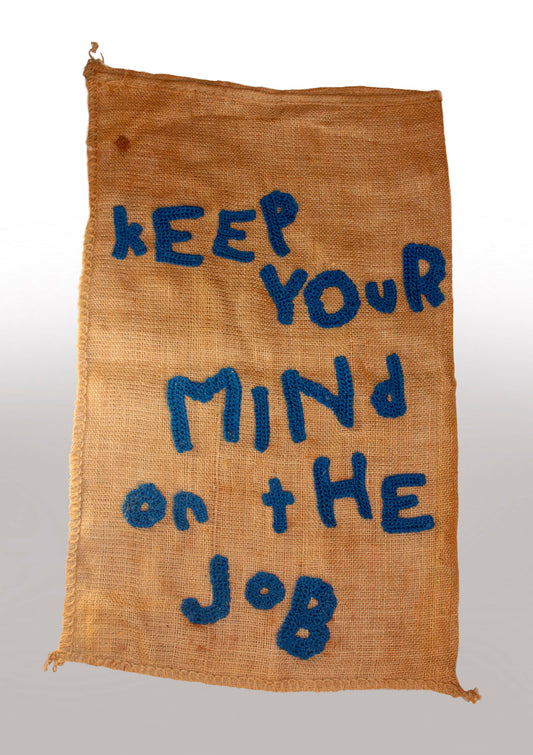 kEEP
YOuR
MINd
on tHE
JoB